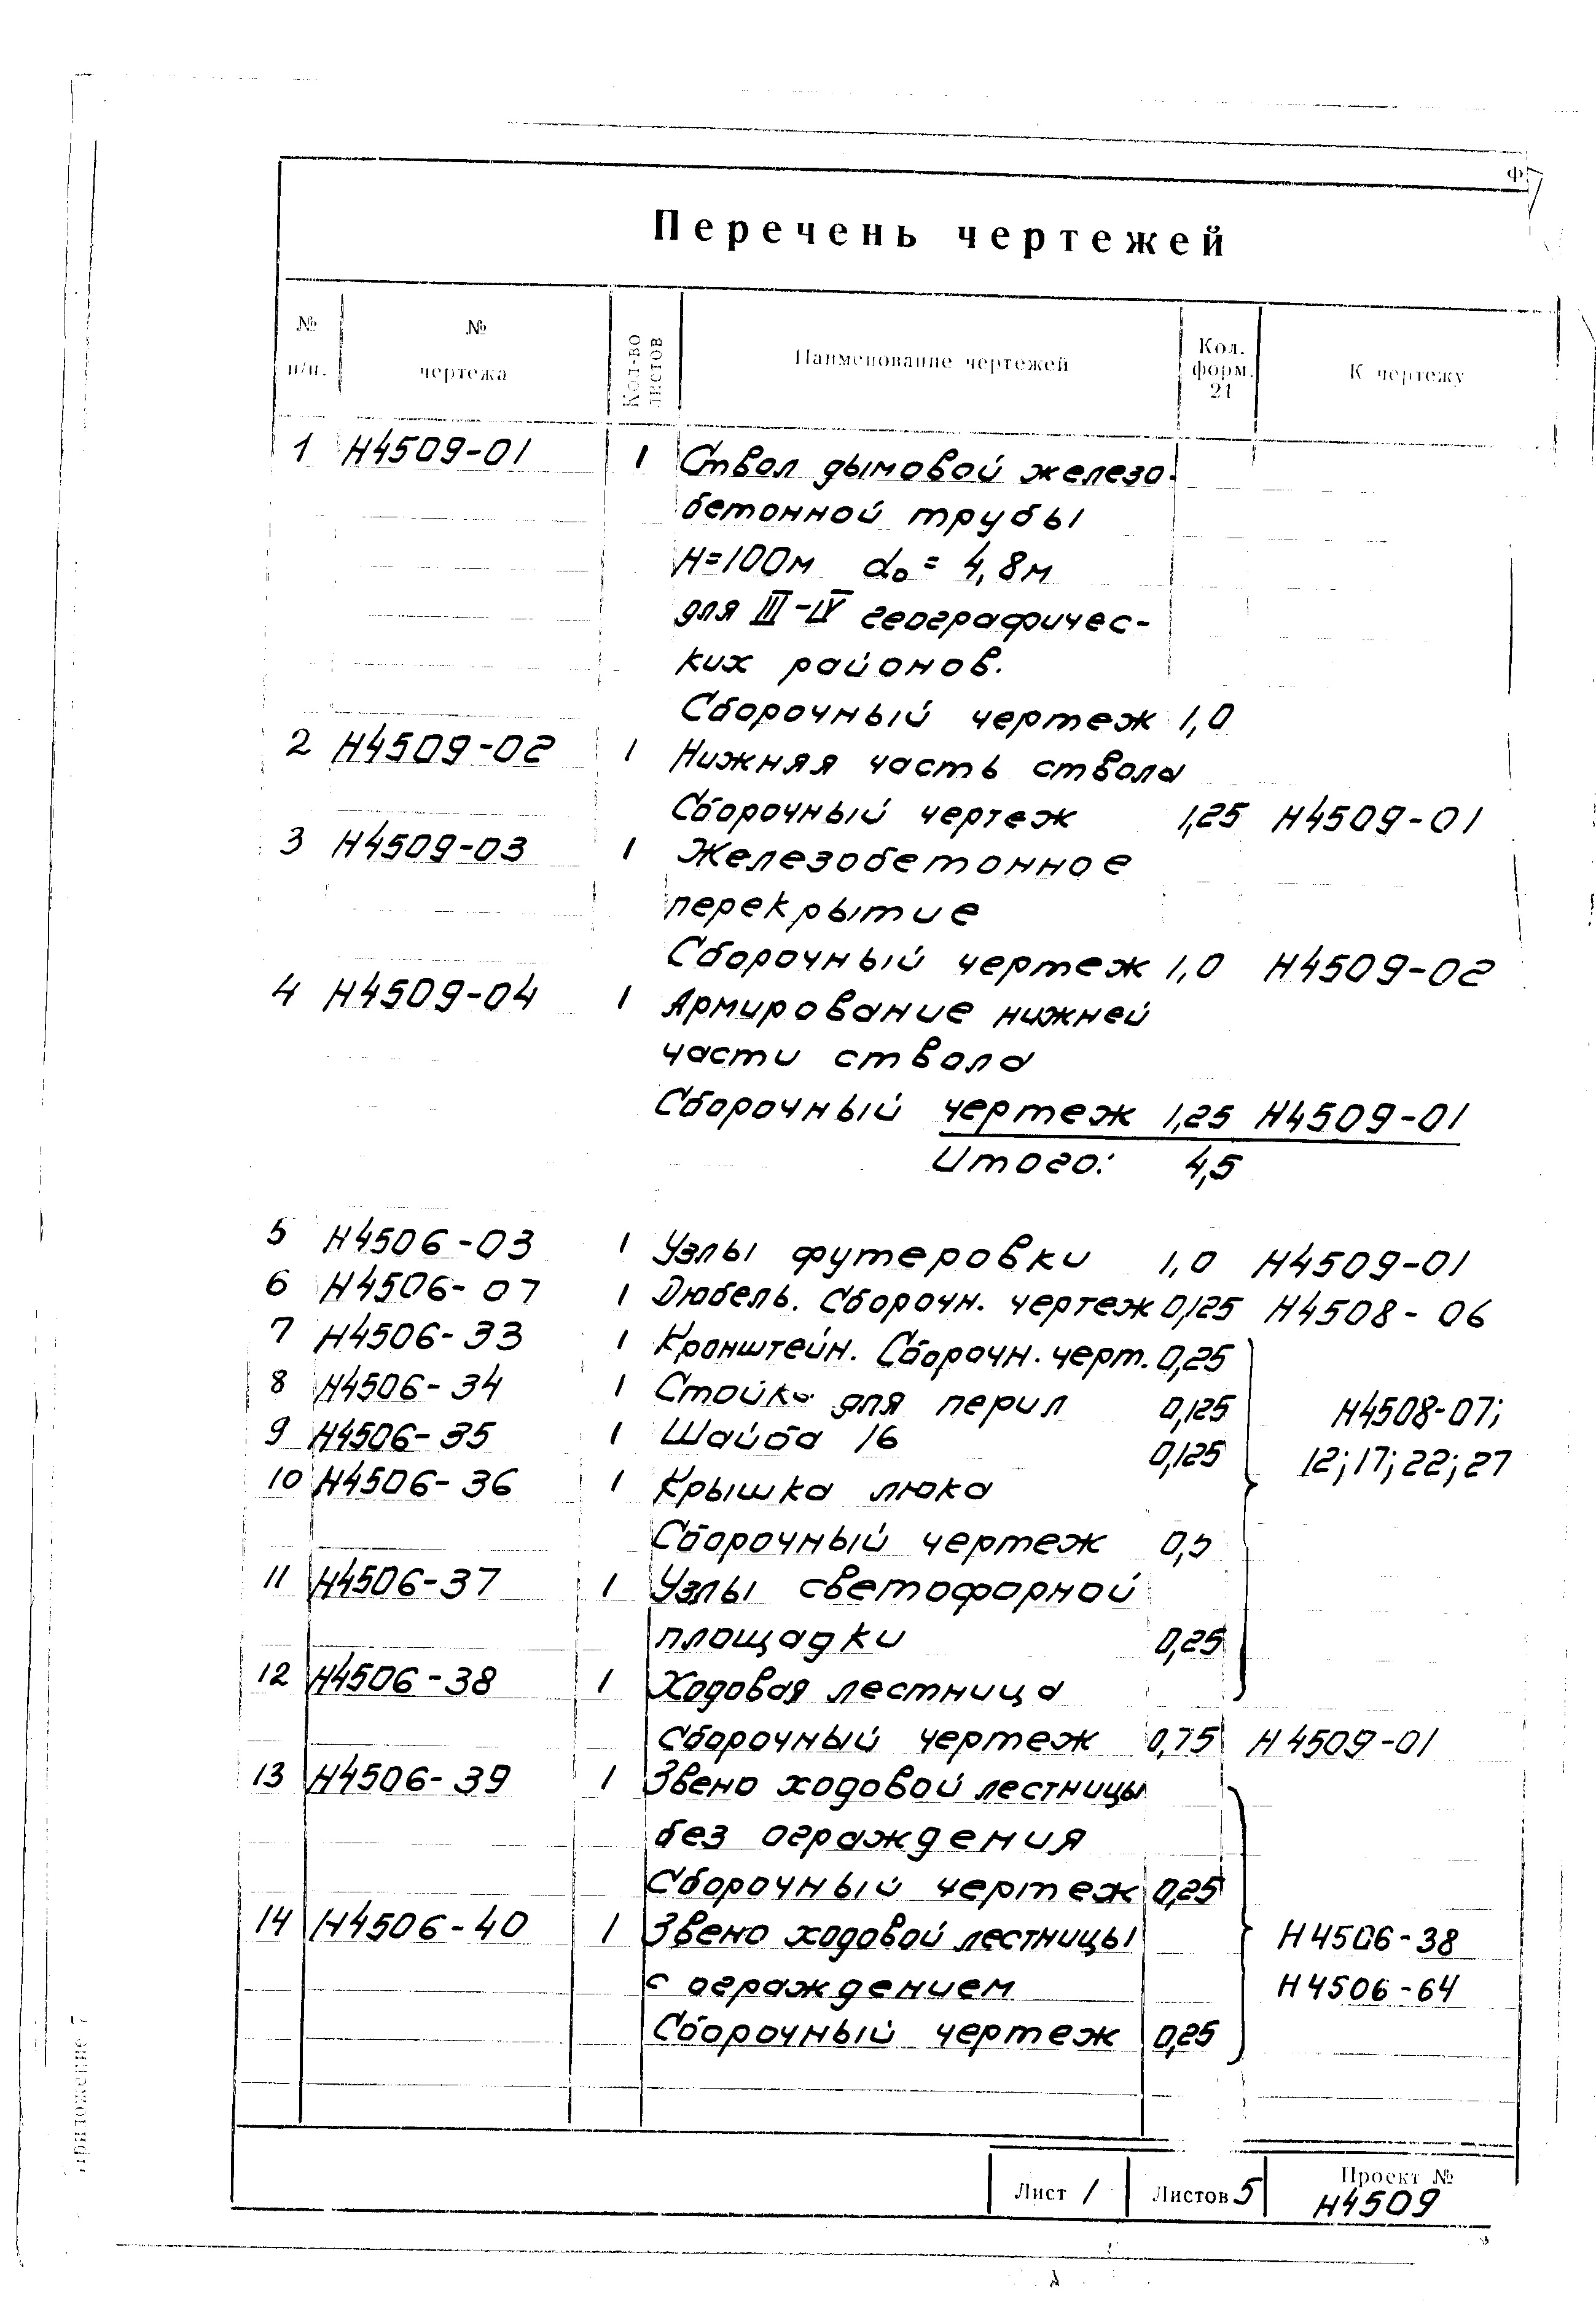 Ф
Перечень чертежей
№ п/п. № чертежа Кол-во листов Наименование чертежей Кол. форм. 21 К чертежу
1 Н4509-01 1 Ствол дымовой железо-
бетонной трубы
Н=100м d₀ = 4,8м
для III-IV географичес-
ких районов.
Сборочный чертеж 1,0
2 Н4509-02 1 Нижняя часть ствола
Сборочный чертеж 1,25 Н4509-01
3 Н4509-03 1 Железобетонное
перекрытие
Сборочный чертеж 1,0 Н4509-02
4 Н4509-04 1 Армирование нижней
части ствола
Сборочный чертеж 1,25 Н4509-01
Итого: 4,5
5 Н4506-03 1 Узлы футеровки 1,0 Н4509-01
6 Н4506-07 1 Дюбель. Сборочн. чертеж 0,125 Н4508-06
7 Н4506-33 1 Кронштейн. Сборочн. черт. 0,25
8 Н4506-34 1 Стойка для перил 0,125 Н4508-07;
9 Н4506-35 1 Шайба 16 0,125 12; 17; 22; 27
10 Н4506-36 1 Крышка люка
Сборочный чертеж 0,5
11 Н4506-37 1 Узлы светофорной
площадки 0,25
12 Н4506-38 1 Ходовая лестница
Сборочный чертеж 0,75 Н4509-01
13 Н4506-39 1 Звено ходовой лестницы
без ограждения
Сборочный чертеж 0,25
14 Н4506-40 1 Звено ходовой лестницы Н4506-38
с ограждением Н4506-64
Сборочный чертеж 0,25
Лист 1 Листов 5 Проект №
Н4509